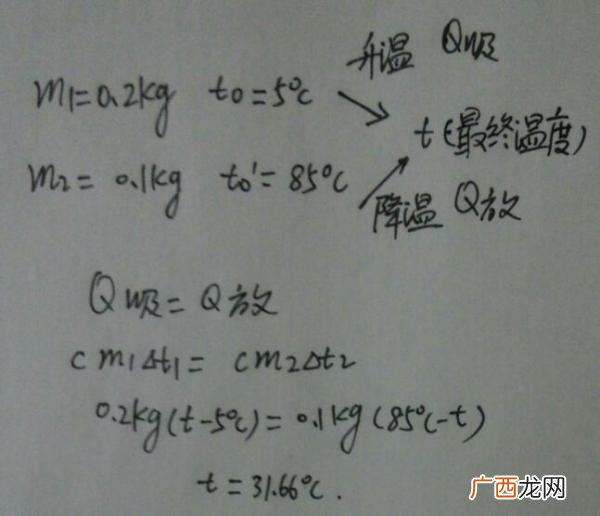 升温 Q吸
m1=0.2kg t0=5℃
t(最终温度)
m2=0.1kg t0'=85℃
降温 Q放
Q吸=Q放
cm1Δt1=cm2Δt2
0.2kg(t-5℃)=0.1kg(85℃-t)
t=31.66℃.
广西龙网